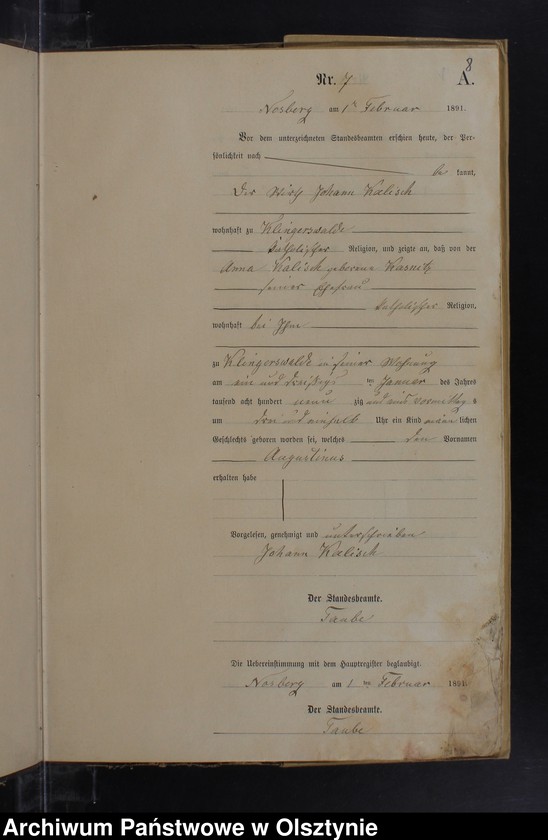 8
Nr. 7 A.
Nosberg am 1ten Februar 1891.
Vor dem unterzeichneten Standesbeamten erschien heute, der Per-
sönlichkeit nach
be kannt,
Der Wirth Johann Kalisch
wohnhaft zu Klingerswalde
katholischer Religion, und zeigte an, daß von der
Anna Kalisch geborene Kasnitz
seiner Ehefrau
katholischer Religion,
wohnhaft bei Ihm
zu Klingerswalde in seiner Wohnung
am ein und dreißigs ten Januar des Jahres
tausend acht hundert neun zig und eins vormittags
um drei und einhalb Uhr ein Kind männ lichen
Geschlechts geboren worden sei, welches den Vornamen
Augustinus
erhalten habe
Vorgelesen, genehmigt und unterschrieben
Johann Kalisch
Der Standesbeamte.
Taube
Die Uebereinstimmung mit dem Hauptregister beglaubigt.
Nosberg am 1 ten Februar 1891.
Der Standesbeamte.
Taube
Archiwum Państwowe w Olsztynie